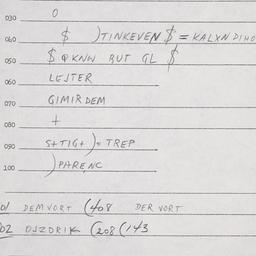 030 0
040 $ )TINKEVEN $ = KALXN DIHO
050 $ QKNW BUT GL $
060 LEJTER
070 GIMIRDEM
080 +
090 S+TIG+ ) = TREP
100 )PARENC
01 DEMVORT (408 DER VORT
02 DJZDRIK (208 (143